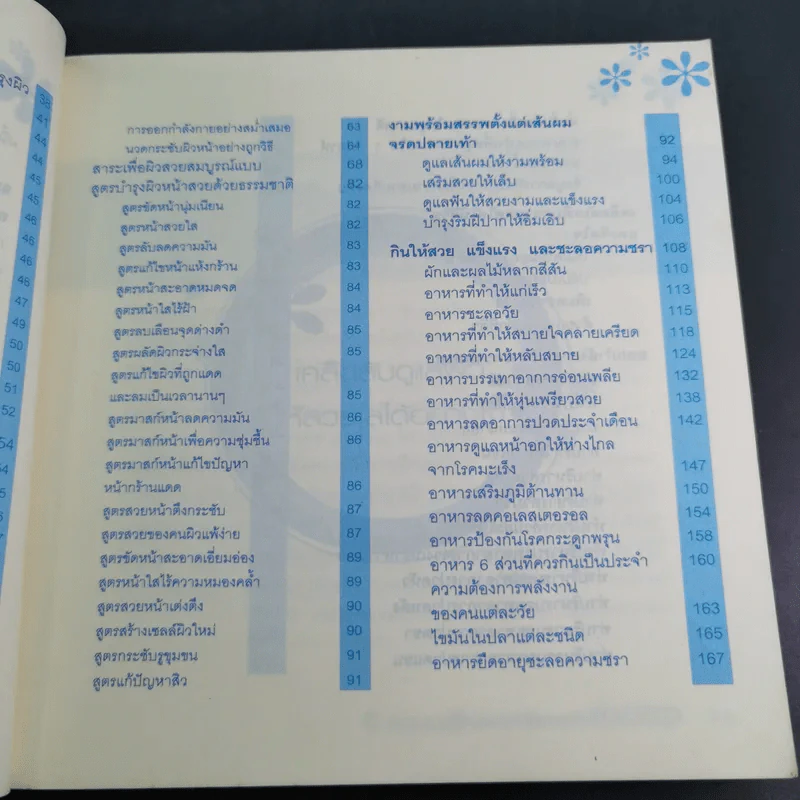 ุงผิว
38
41
44
44
45
45
46
46
46
47
49
50
50
51
52
54
54
55
การออกกำลังกายอย่างสม่ำเสมอ 63
นวดกระชับผิวหน้าอย่างถูกวิธี 64
สาระเพื่อผิวสวยสมบูรณ์แบบ 68
สูตรบำรุงผิวหน้าสวยด้วยธรรมชาติ 82
สูตรขัดหน้านุ่มเนียน 82
สูตรหน้าสวยใส 82
สูตรลับลดความมัน 83
สูตรแก้ไขหน้าแห้งกร้าน 83
สูตรหน้าสะอาดหมดจด 84
สูตรหน้าใสไร้ฝ้า 84
สูตรลบเลือนจุดด่างดำ 85
สูตรผลัดผิวกระจ่างใส 85
สูตรแก้ไขผิวที่ถูกแดด
และลมเป็นเวลานานๆ 85
สูตรมาสก์หน้าลดความมัน 86
สูตรมาสก์หน้าเพื่อความชุ่มชื้น 86
สูตรมาสก์หน้าแก้ไขปัญหา
หน้ากร้านแดด 86
สูตรสวยหน้าตึงกระชับ 87
สูตรสวยของคนผิวแพ้ง่าย 87
สูตรขัดหน้าสะอาดเอี่ยมอ่อง 89
สูตรหน้าใสไร้ความหมองคล้ำ 89
สูตรสวยหน้าเต่งตึง 90
สูตรสร้างเซลล์ผิวใหม่ 90
สูตรกระชับรูขุมขน 91
สูตรแก้ปัญหาสิว 91
งามพร้อมสรรพตั้งแต่เส้นผม
จรดปลายเท้า 92
ดูแลเส้นผมให้งามพร้อม 94
เสริมสวยให้เล็บ 100
ดูแลฟันให้สวยงามและแข็งแรง 104
บำรุงริมฝีปากให้อิ่มเอิบ 106
กินให้สวย แข็งแรง และชะลอความชรา 108
ผักและผลไม้หลากสีสัน 110
อาหารที่ทำให้แก่เร็ว 113
อาหารชะลอวัย 115
อาหารที่ทำให้สบายใจคลายเครียด 118
อาหารที่ทำให้หลับสบาย 124
อาหารบรรเทาอาการอ่อนเพลีย 132
อาหารที่ทำให้หุ่นเพรียวสวย 138
อาหารลดอาการปวดประจำเดือน 142
อาหารดูแลหน้าอกให้ห่างไกล
จากโรคมะเร็ง 147
อาหารเสริมภูมิต้านทาน 150
อาหารลดคอเลสเตอรอล 154
อาหารป้องกันโรคกระดูกพรุน 158
อาหาร 6 ส่วนที่ควรกินเป็นประจำ 160
ความต้องการพลังงาน
ของคนแต่ละวัย 163
ไขมันในปลาแต่ละชนิด 165
อาหารยืดอายุชะลอความชรา 167